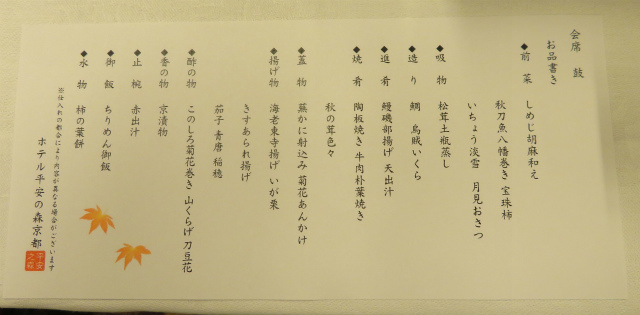 会席 鼓
お品書き
◆前菜 しめじ胡麻和え
秋刀魚八幡巻き 宝珠柿
いちょう淡雪 月見おきつ
◆吸物 松茸土瓶蒸し
◆造り 鯛 烏賊いくら
◆進肴 鰻磯部揚げ 天出汁
◆焼肴 陶板焼き 牛肉朴葉焼き
秋の茸色々
◆蓋物 蕪かに射込み 菊花あんかけ
◆揚げ物 海老東寺揚げ いが栗
きすあられ揚げ
茄子 青唐 稲穂
◆酢の物 このしろ菊花巻き 山くらげ 刀豆花
◆香の物 京漬物
◆止椀 赤出汁
◆御飯 ちりめん御飯
◆水物 柿の葉餅
※仕入れの都合により内容が異なる場合がございます
ホテル平安の森京都
平安之森